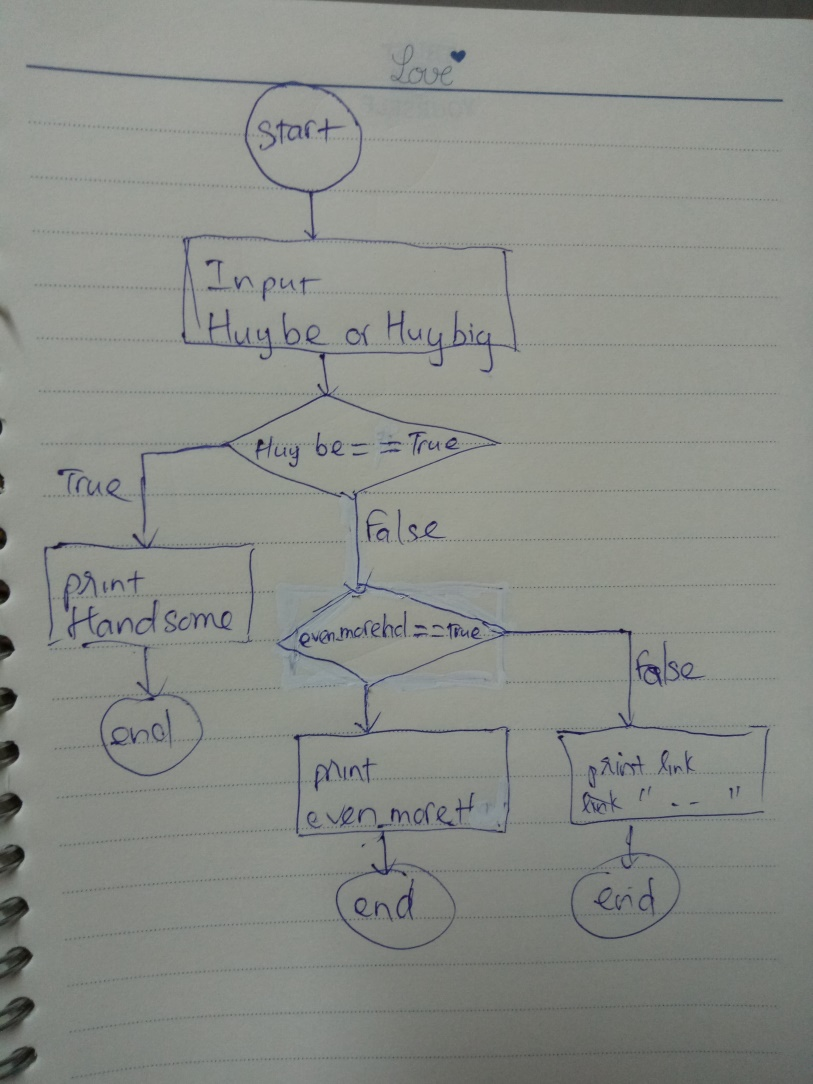 Love
Start
Input
Huy be or Huy big
Huy be = = True
True
False
print
Handsome
even_morehd == True
False
end
print
even_more H
print link
link " - - "
end
end